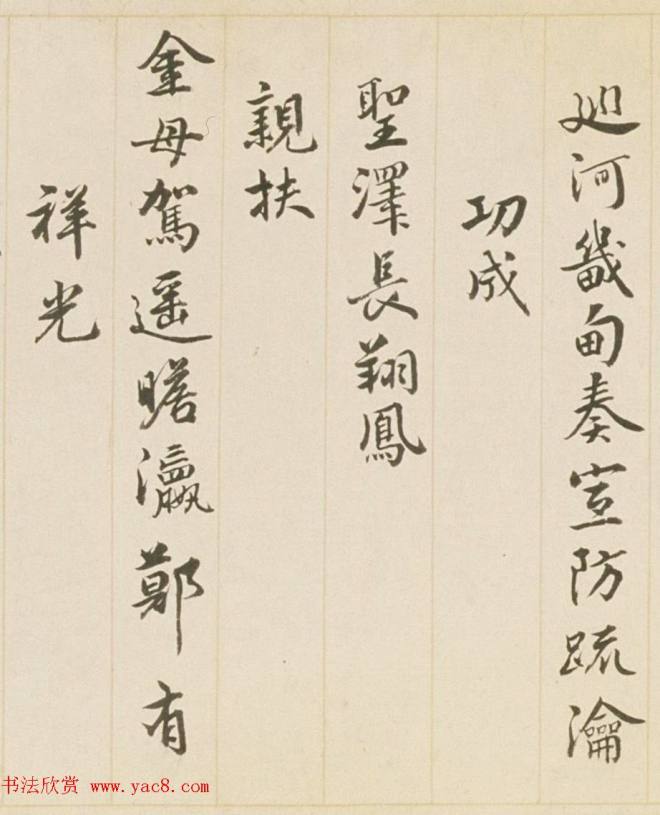 廵河畿甸奏宣防䟽瀹
功成
聖澤長翔鳳
親扶
金母駕遥瞻瀛鄚有
祥光
书法欣赏 www.yac8.com